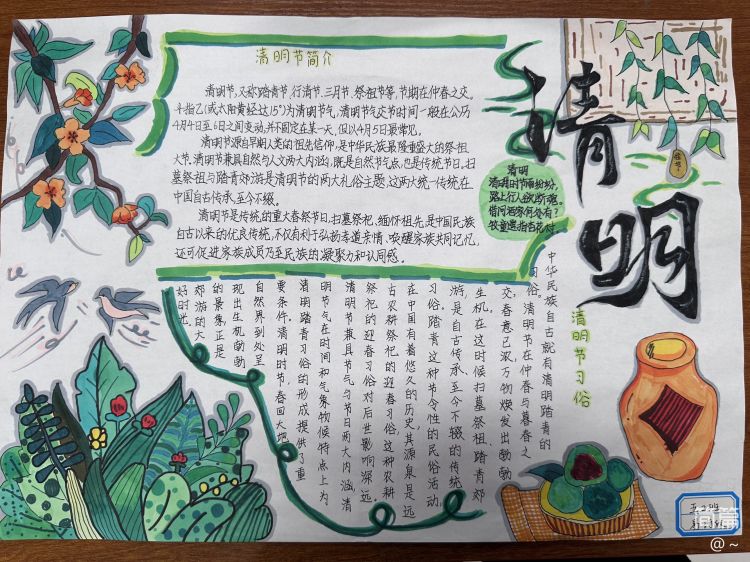 清明
清明节简介
清明节,又称踏青节、行清节、三月节、祭祖节等,节期在仲春之交。
斗指乙(或太阳黄经达15°)为清明节气,清明节气交节时间一般在公历
4月4日至6日之间变动,并不固定在某一天,但以4月5日最常见。
清明节源自早期人类的祖先信仰,是中华民族最隆重盛大的祭祖
大节。清明节兼具自然与人文两大内涵,既是自然节气点,也是传统节日,扫
墓祭祖与踏青郊游是清明节的两大礼俗主题,这两大统一传统在
中国自古传承,至今不缀。
清明节是传统的重大春祭节日,扫墓祭祀、缅怀祖先,是中国民族
自古以来的优良传统,不仅有利于弘扬孝道亲情、唤醒家族共同记忆,
还可促进家族成员乃至民族的凝聚力和认同感。
清明
清明时节雨纷纷,
路上行人欲断魂。
借问酒家何处有?
牧童遥指杏花村.
清明节习俗
中华民族自古就有清明踏青的
习俗。清明节在仲春与暮春之
交,春意已浓,万物焕发出勃勃
生机,在这时候扫墓祭祖踏青郊
游,是自古传承、至今不辍的传统
习俗。踏青这种节令性的民俗活动,
在中国有着悠久的历史,其源泉是远
古农耕祭祀的迎春习俗,这种农耕
祭祀的迎春习俗对后世影响深远。
清明节兼具节气与节日两大内涵,清
明节气在时间和气象物候特点上为
清明踏青节俗的形成提供了重
要条件。清明时节,春回大地,
自然界到处呈
现出生机勃勃
的景象,正是
郊游的大
好时光。
美篇
@~